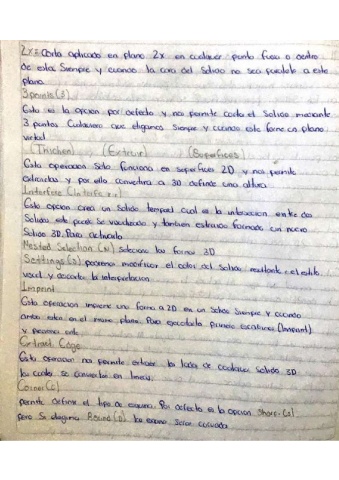 ZX= Corta aplicado en plano ZX en cualquier punto fuera o dentro
de este. Siempre y cuando la cara del Solido no sea paralelo a este
plano
3points (3)
Esta es la opcion por defecto y nos permite corta el Solido mediante
3 puntos Cualquiera que eligamos Siempre y cuando este forme un plano
virtual
(Thicken) (Extruir) (Superficies)
Esta operacion Solo funciona en superficies 2D y nos permite
extruirlas y por ello convertira a 3D definido una altura
Interfere (interferir)
Esta opcion crea un Solido temporal cual es la interseccion entre dos
Solidos este puede Se visualizado y tambien extraido formando un nuevo
Solido 3D. Para activarlo
Nested Selection (N) seleciona las formas 3D
Settings (S) podemos modificar el color del Solido resultante el estilo
visual y durante la interpretacion
Imprint
Esta operacion imprime una forma a 2D en un Solido Siempre y cuando
ambos esten en el mismo plano. Para ejecutarla primero escribimos (Imprint)
y presiono enter
Extract Edge
Esta operacion nos permite extraer los lados de cualquier Solido 3D
los cuales se convierten en lineas.
Corner (C)
permite definir el tipo de esquina. Por defecto es la opcion Sharp (S)
pero Se elegimos Round (R) las esquinas Seran curvada